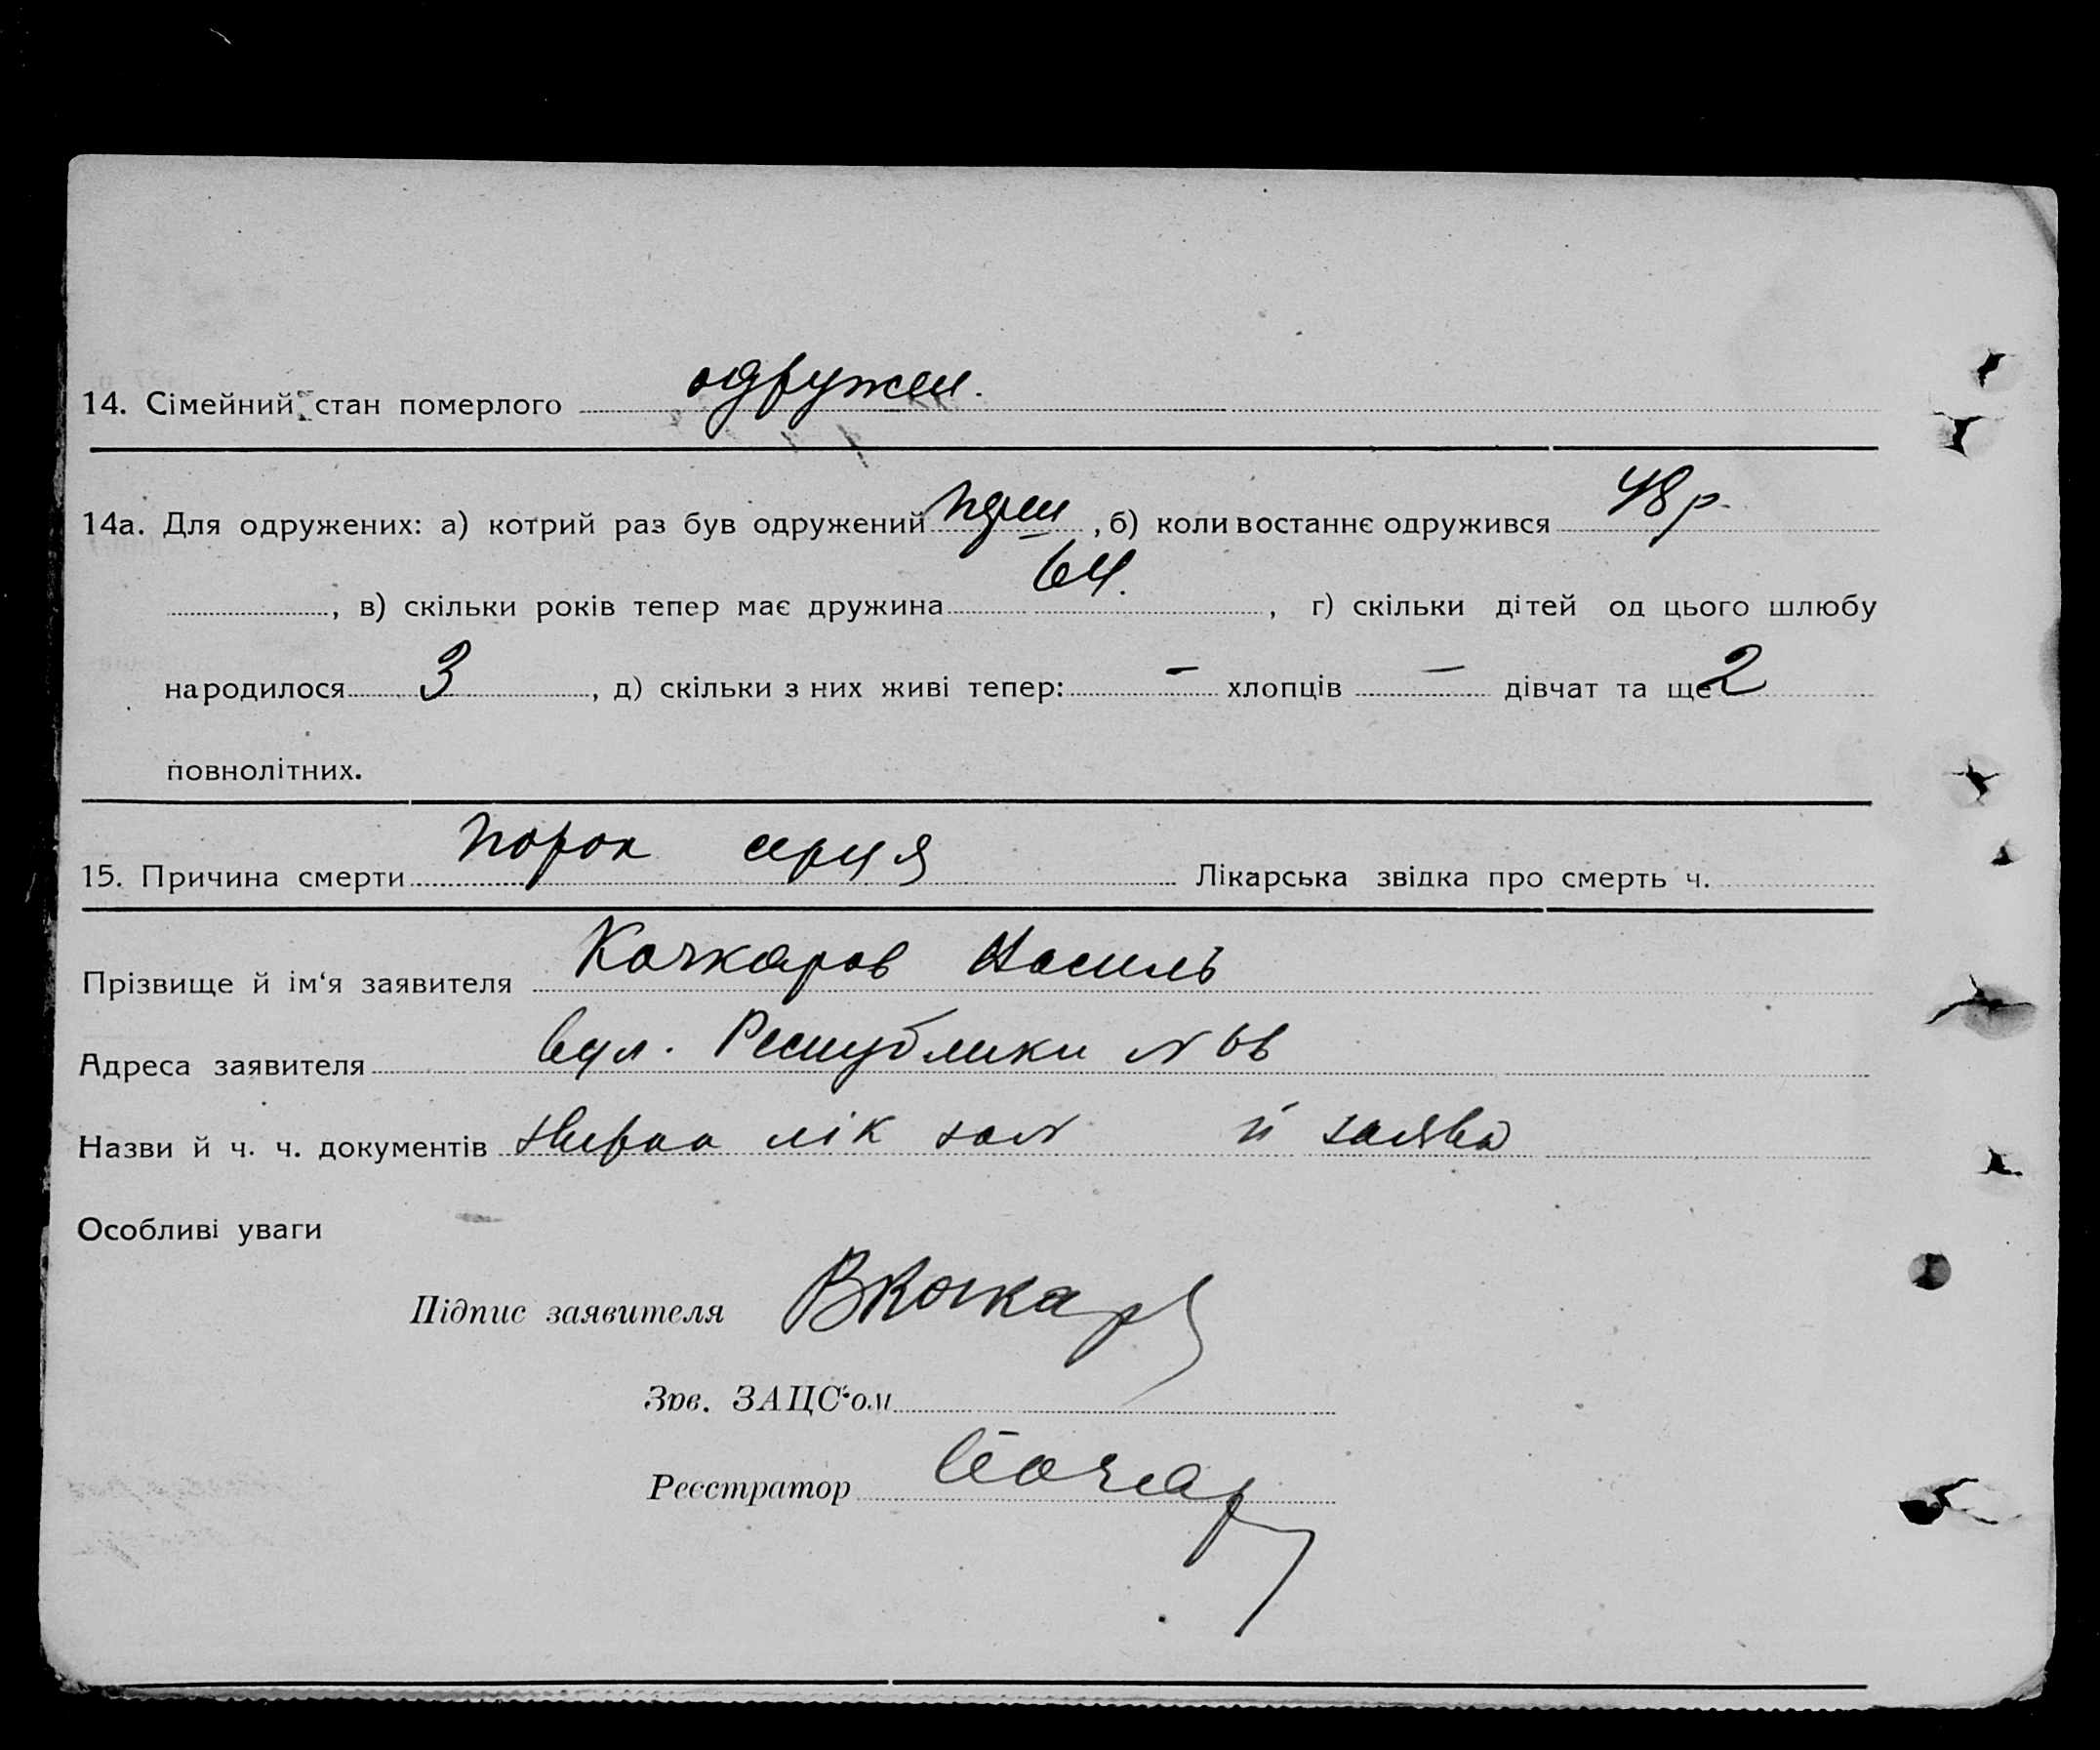 14. Сімейний стан померлого одружен.
14а. Для одружених: а) котрий раз був одружений перш, б) коли востаннє одружився 48 р.
, в) скільки років тепер має дружина 64. , г) скільки дітей од цього шлюбу
народилося 3 , д) скільки з них живі тепер: – хлопців – дівчат та ще 2
повнолітних.
15. Причина смерти порок серця Лікарська звідка про смерть ч.
Прізвище й ім‘я заявителя Кочкаров Василь
Адреса заявителя вул. Республики № 66
Назви й ч. ч. документів лік й заява
Особливі уваги
Підпис заявителя ВКочкар
Зав. ЗАЦС‘ом
Реєстратор